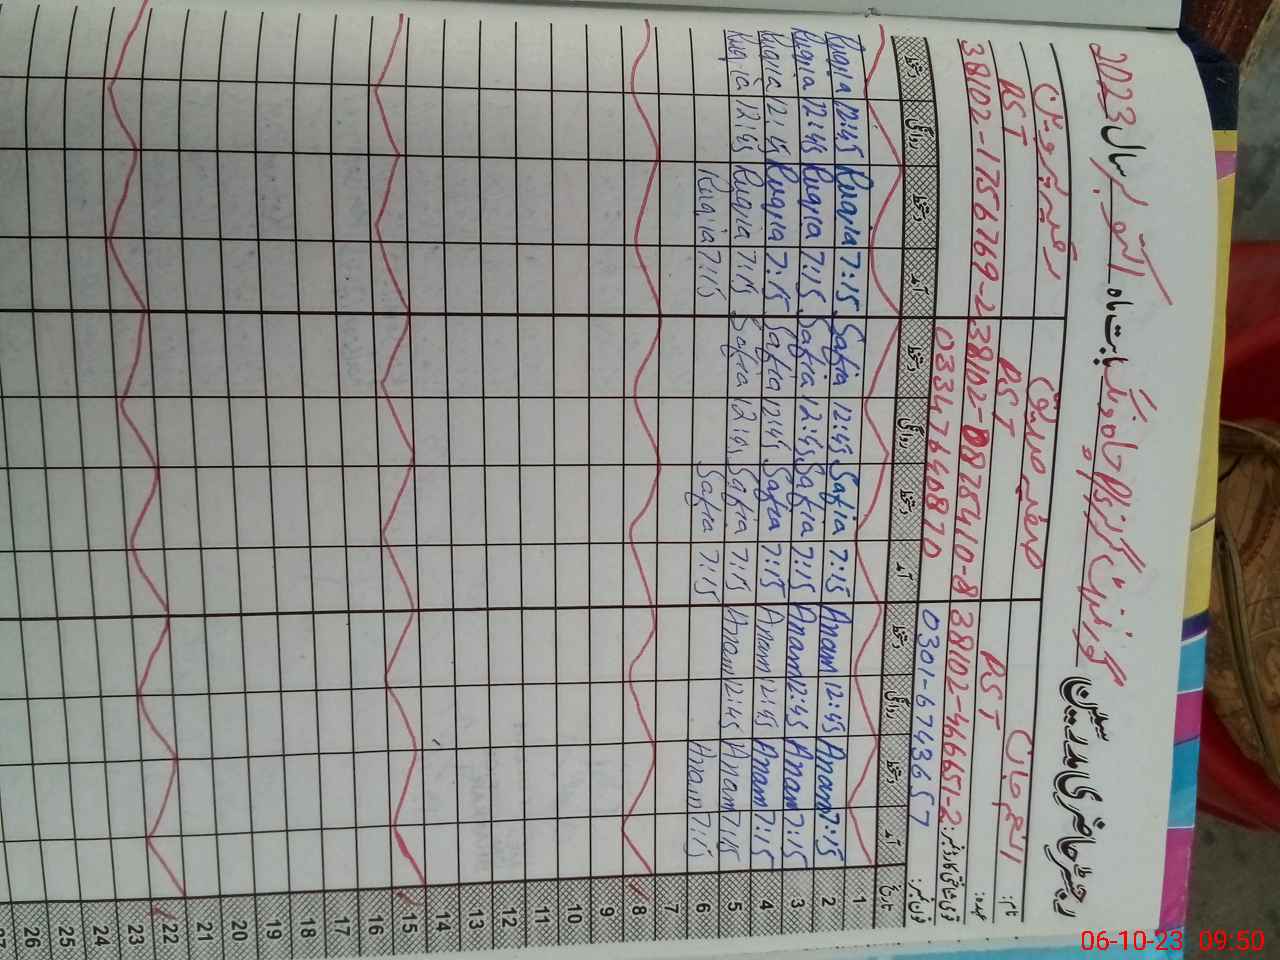 رجسٹر حاضری مدرسین گورنمنٹ گرلز پرائمری بابت ماہ اکتوبر سال 2023
نام: انعم جان صفیہ صدیق رقیہ پروین
عہدہ: PST PST PST
قومی شناختی کارڈ نمبر: 38102-466651-2 38102-0825410-8 38102-1756769-2
فون نمبر: 0301-6743657 03347640870
تاریخ آمد دستخط روانگی دستخط آمد دستخط روانگی دستخط آمد دستخط روانگی دستخط
1
2 7:15 Anam 12:45 Anam 7:15 Safia 12:45 Safia 7:15 Ruqia 12:45 Ruqia
3 7:15 Anam 12:45 Anam 7:15 Safia 12:45 Safia 7:15 Ruqia 12:45 Ruqia
4 7:15 Anam 12:45 Anam 7:15 Safia 12:45 Safia 7:15 Ruqia 12:45 Ruqia
5 7:15 Anam 12:45 Anam 7:15 Safia 12:45 Safia 7:15 Ruqia 12:45 Ruqia
6 7:15 Anam 7:15 Safia 7:15 Ruqia
7
8
9
10
11
12
13
14
15
16
17
18
19
20
21
22
23
24
25
26
06-10-23 09:50